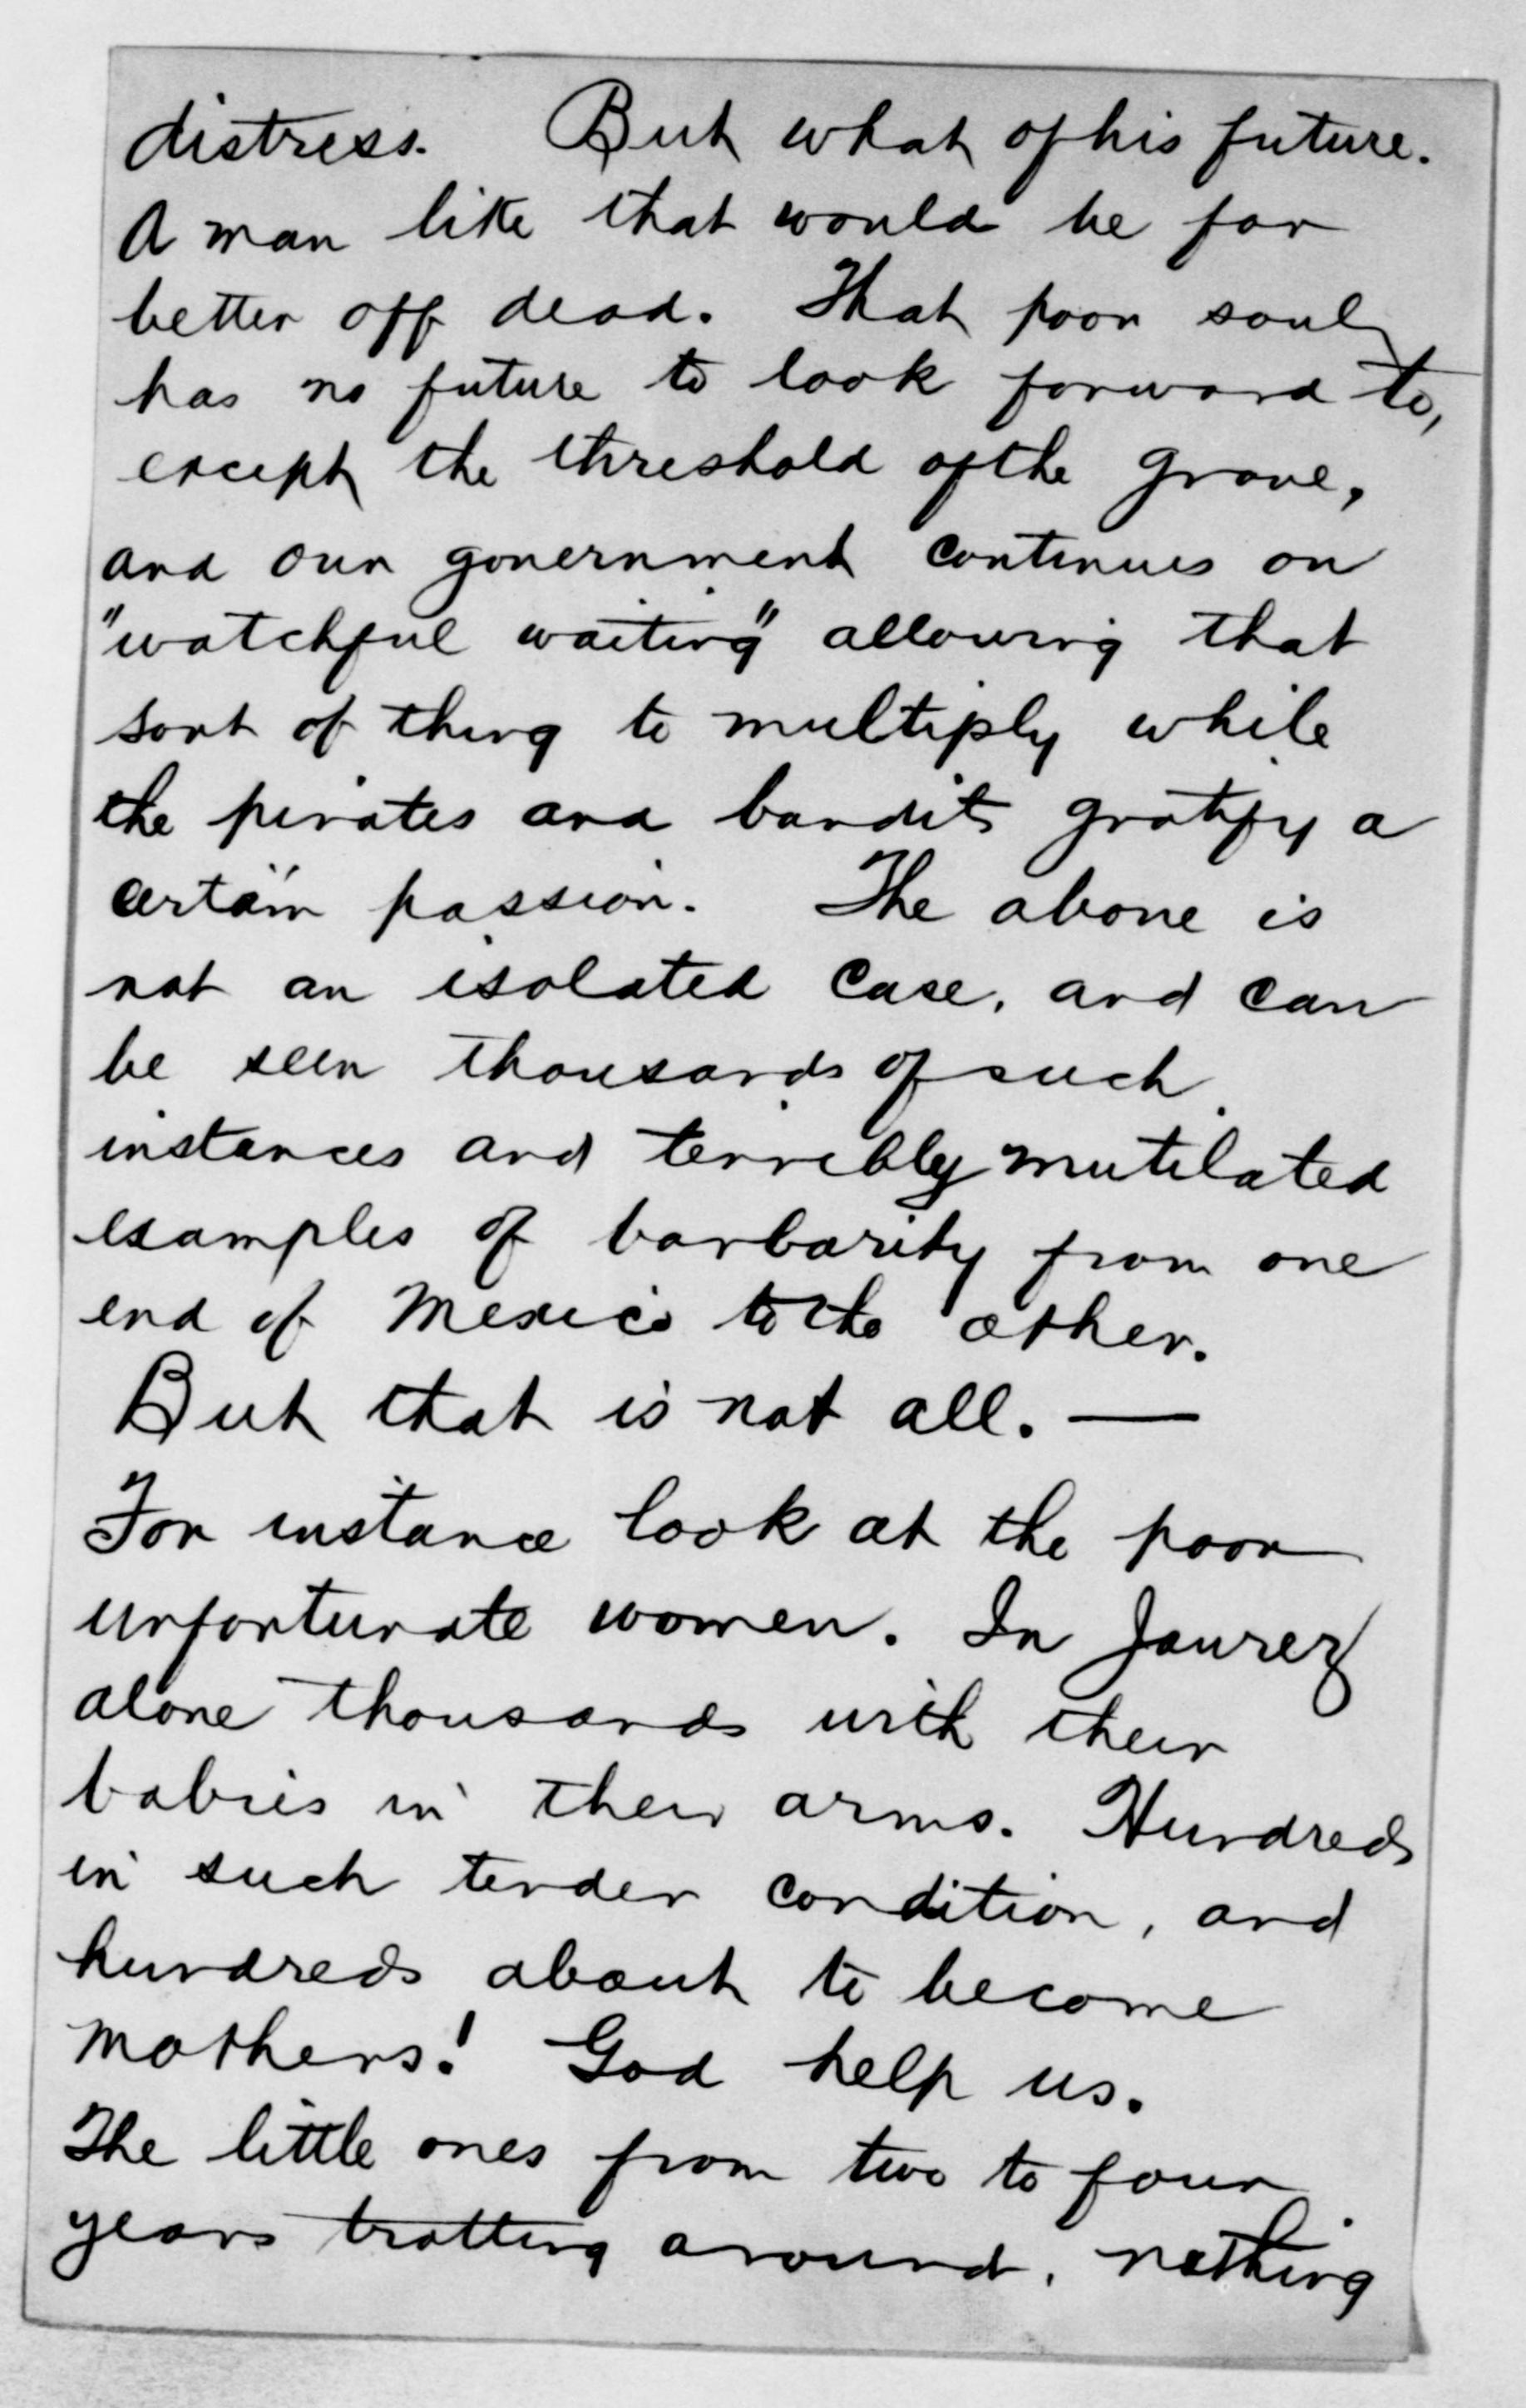 distress. But what of his future.
A man like that would be far
better off dead. That poor soul
has no future to look forward to,
except the threshold of the grave,
and our government continues on
"watchful waiting" allowing that
sort of thing to multiply while
the pirates and bandits gratify a
certain passion. The above is
not an isolated case, and can
be seen thousands of such
instances and terribly mutilated
examples of barbarity from one
end of Mexico to the other.
But that is not all. —
For instance look at the poor
unfortunate women. In Jaurez
alone thousands with their
babies in their arms. Hundreds
in such tender condition, and
hundreds about to become
mothers! God help us.
The little ones from two to four
years trotting around, nothing